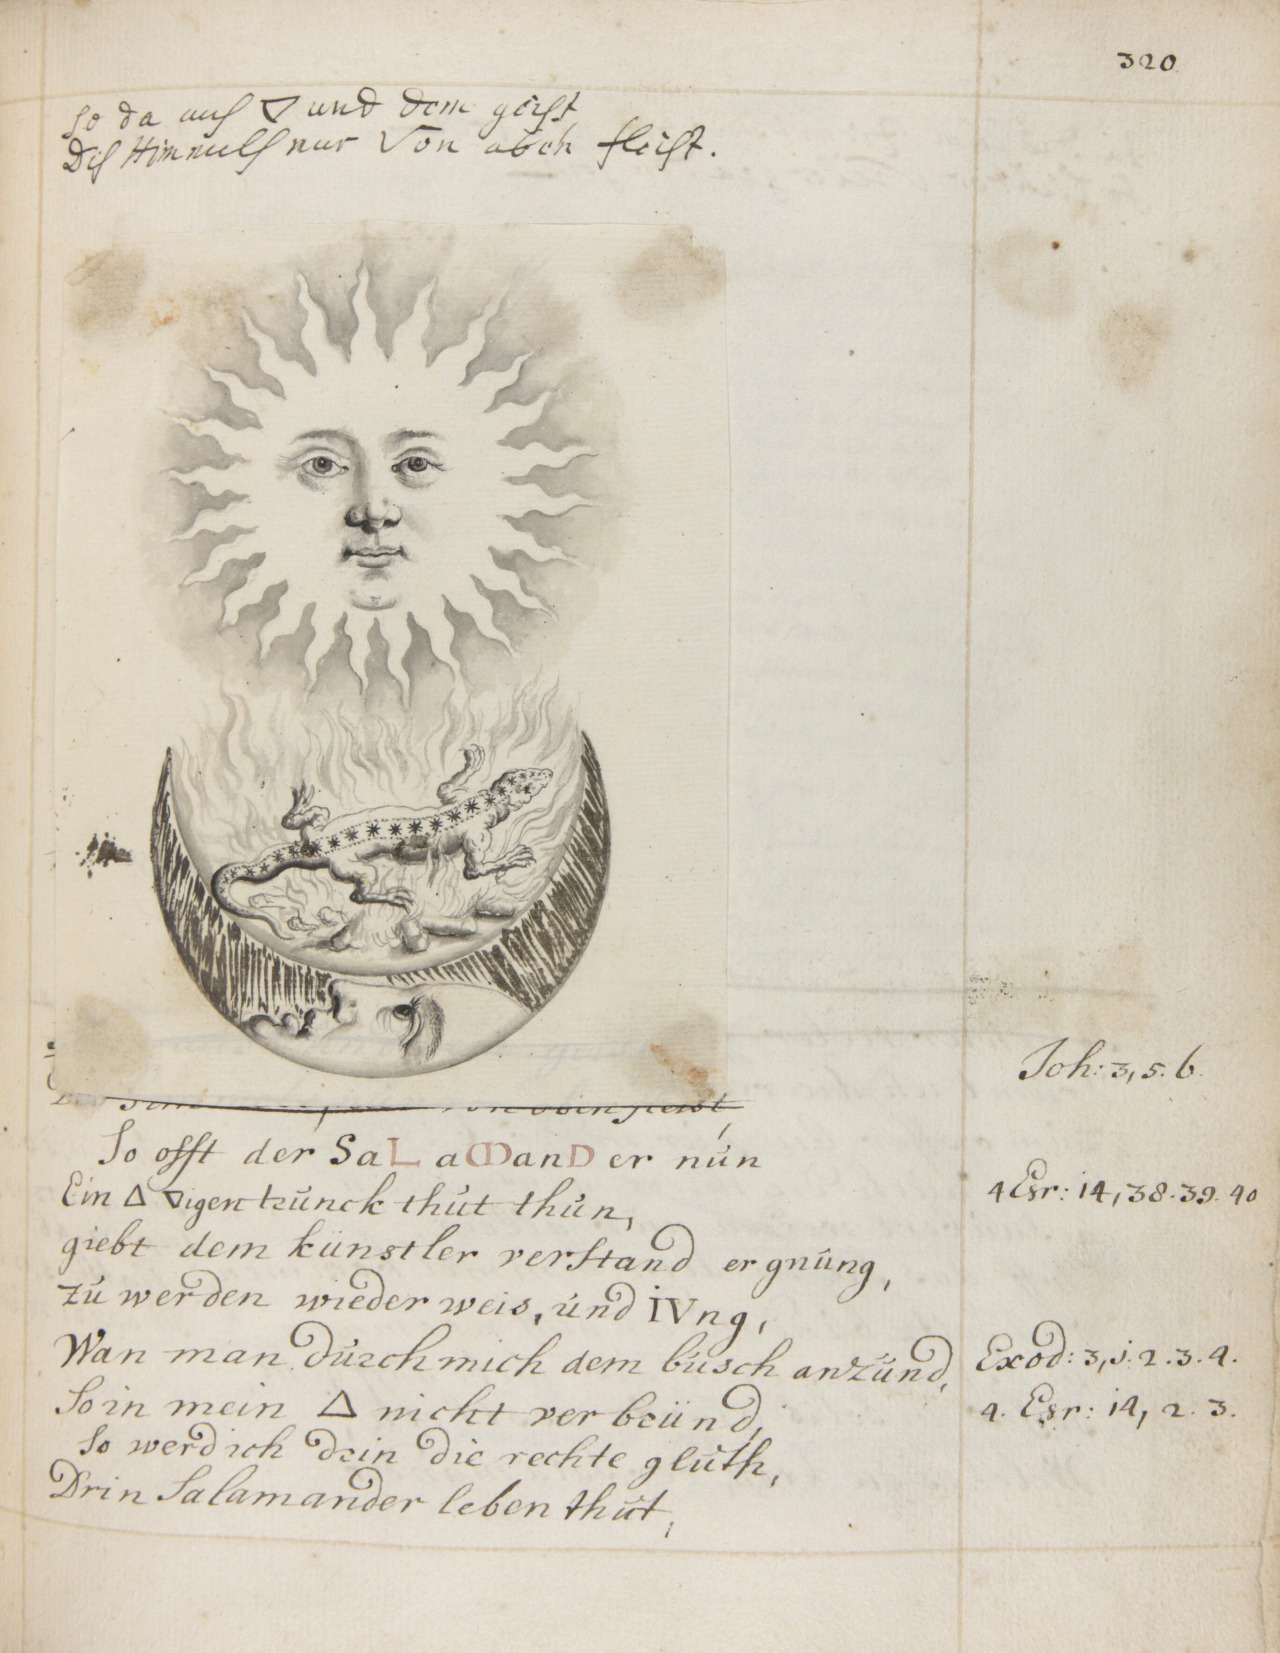 320
so da auß ▽ und dem geist
Deß Himmels nur Von abeh fleist.
Joh: 3, 5. 6.
von oben fleist,
So offt der SaLaManDer nún
Ein △ ▽igen trúnck thút thún,
giebt dem künstler verstand ergnúng,
zú werden wieder weis, únd IVng,
Wan man dúrch mich dem búsch anzúnd,
So in mein △ nicht verbrünnd,
So werd ich drin die rechte glúth,
Drin Salamander leben thút,
4 Esr: 14, 38. 39. 40
Exod: 3, 1. 2. 3. 4.
4. Esr: 14, 2. 3.